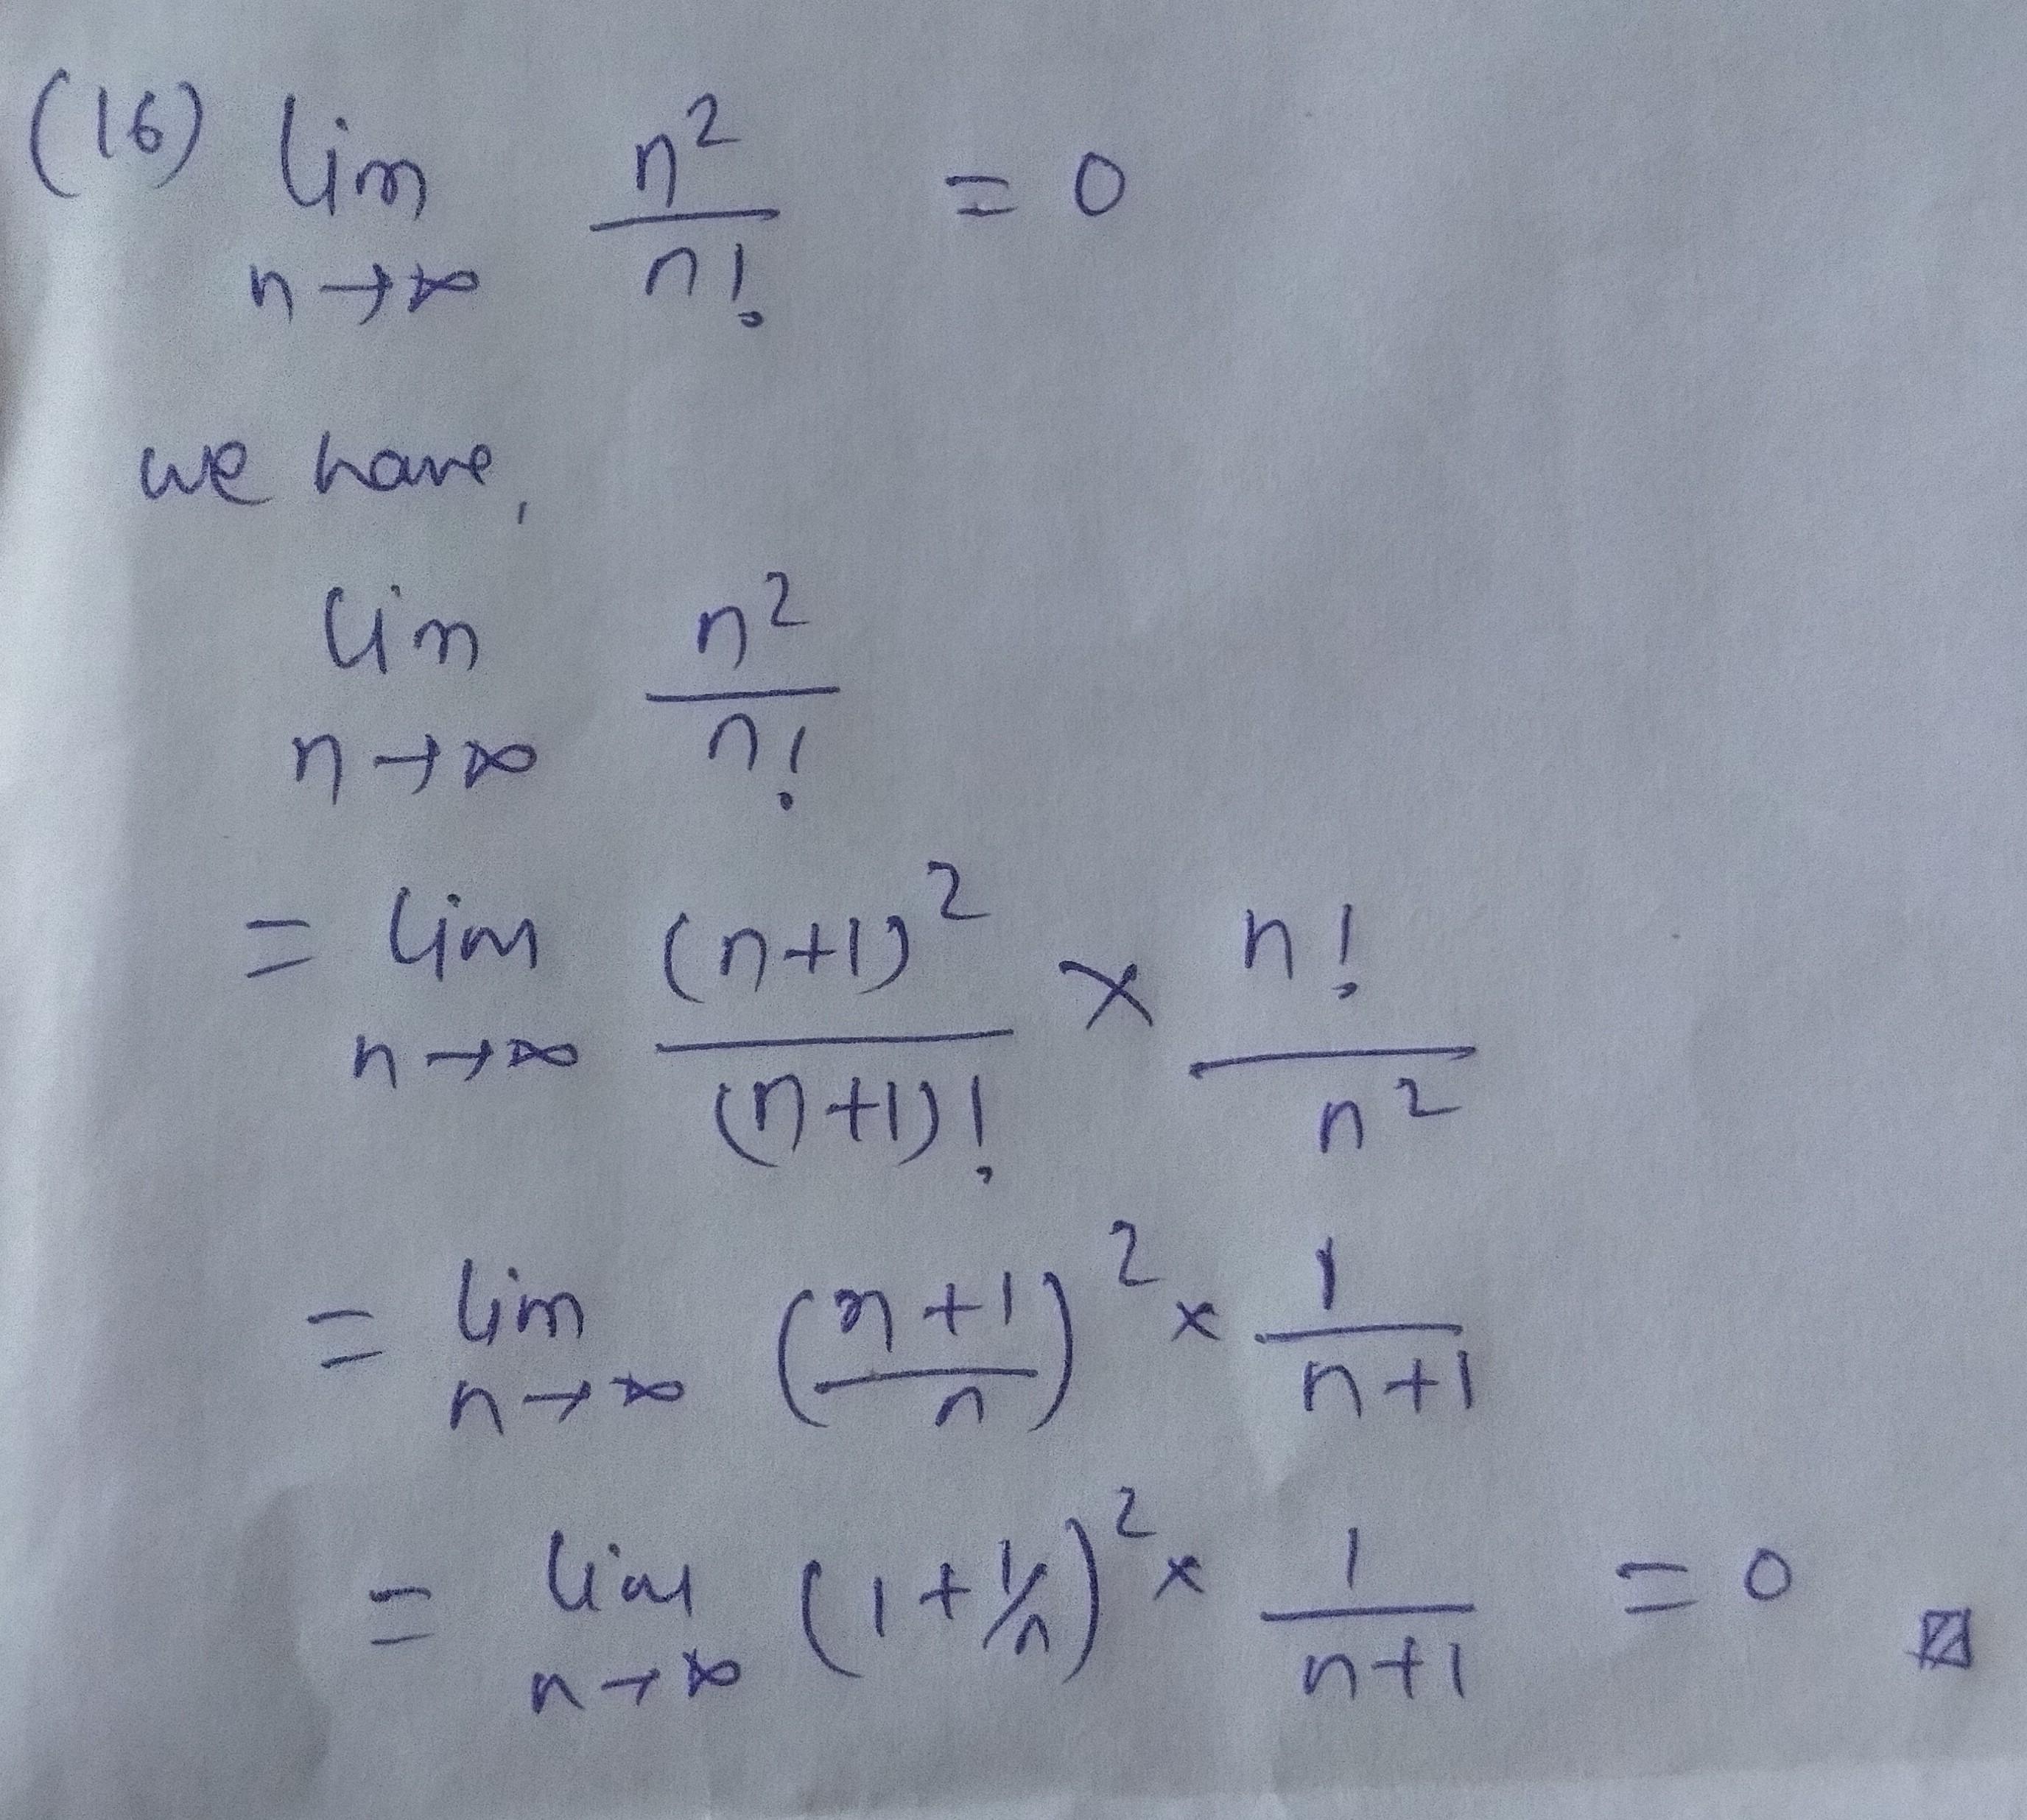 (16) lim n→∞ n²/n! = 0
we have,
lim n→∞ n²/n!
= lim n→∞ (n+1)²/(n+1)! × n!/n²
= lim n→∞ (n+1/n)² × 1/n+1
= lim n→∞ (1+1/n)² × 1/n+1 = 0